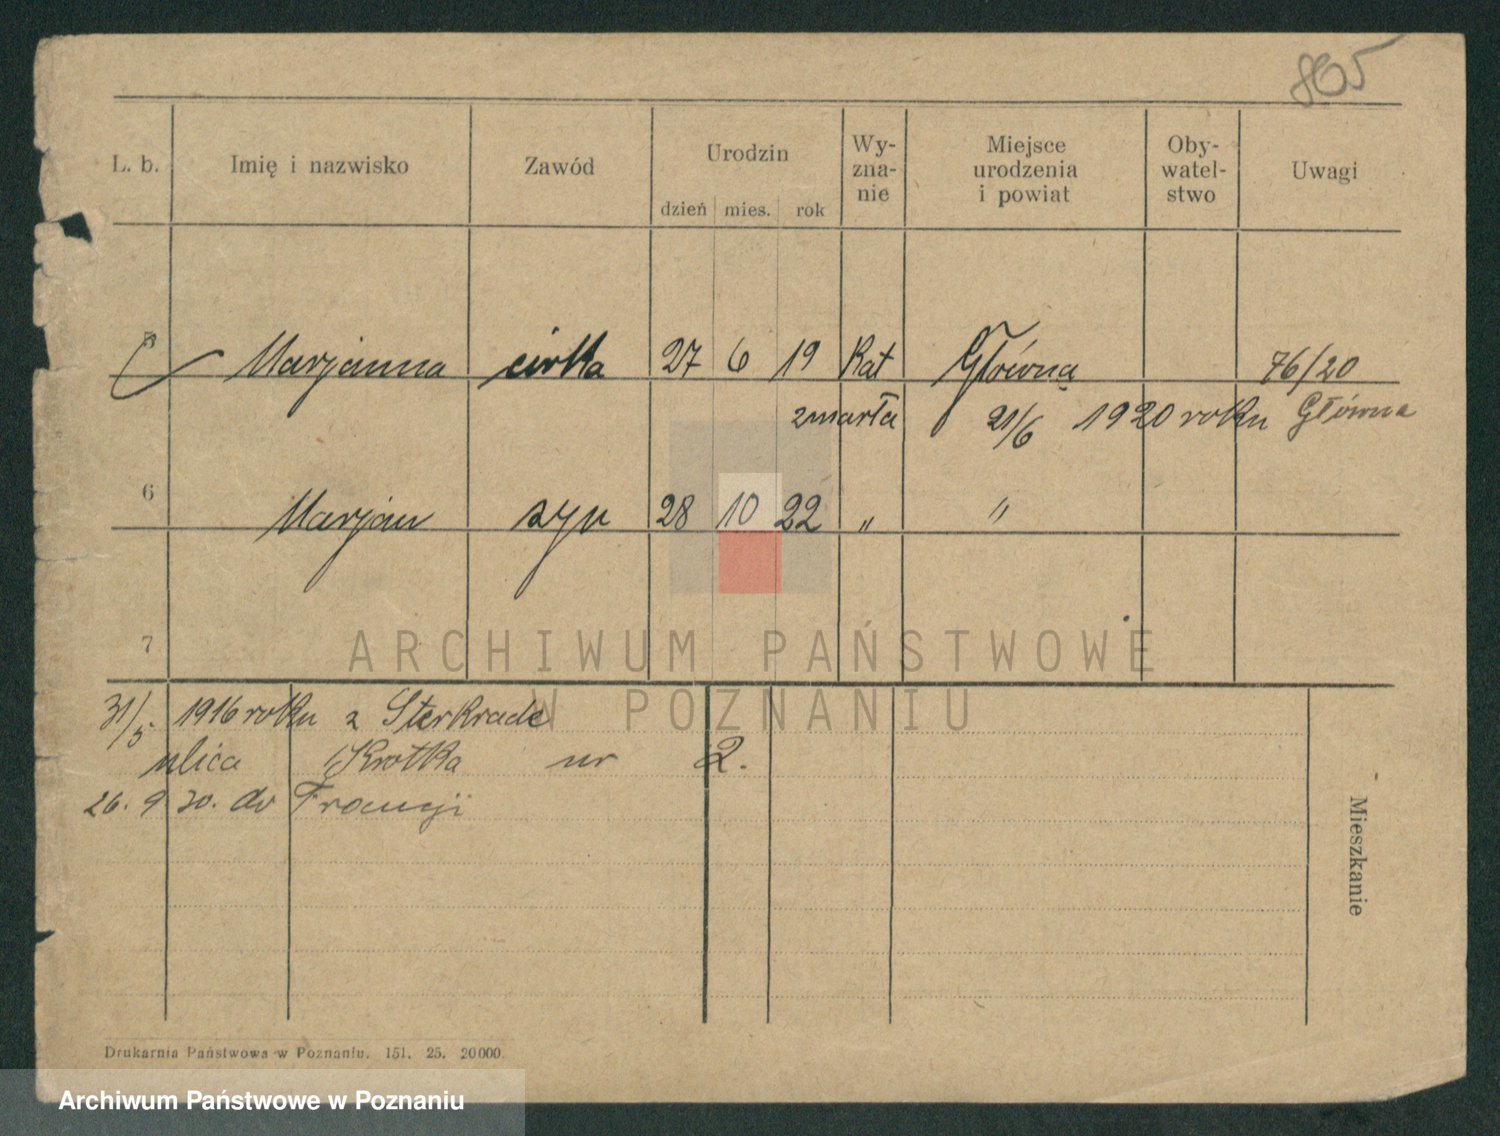 865
L. b. Imię i nazwisko Zawód Urodzin Wy-zna-nie Miejsce urodzenia i powiat Oby-watel-stwo Uwagi
dzień mies. rok
5 Marjanna córka 27 6 19 Kat Główna 76/20
zmarła 21/6 1920 roku Główna
6 Marjan syn 28 10 22 " "
7
ARCHIWUM PAŃSTWOWE
W POZNANIU
31/5 1916 roku z Sterkrade
ulica Krotka nr 2.
26. 9 30. do Francji
Mieszkanie
Drukarnia Państwowa w Poznaniu. 151. 25. 20000.
Archiwum Państwowe w Poznaniu